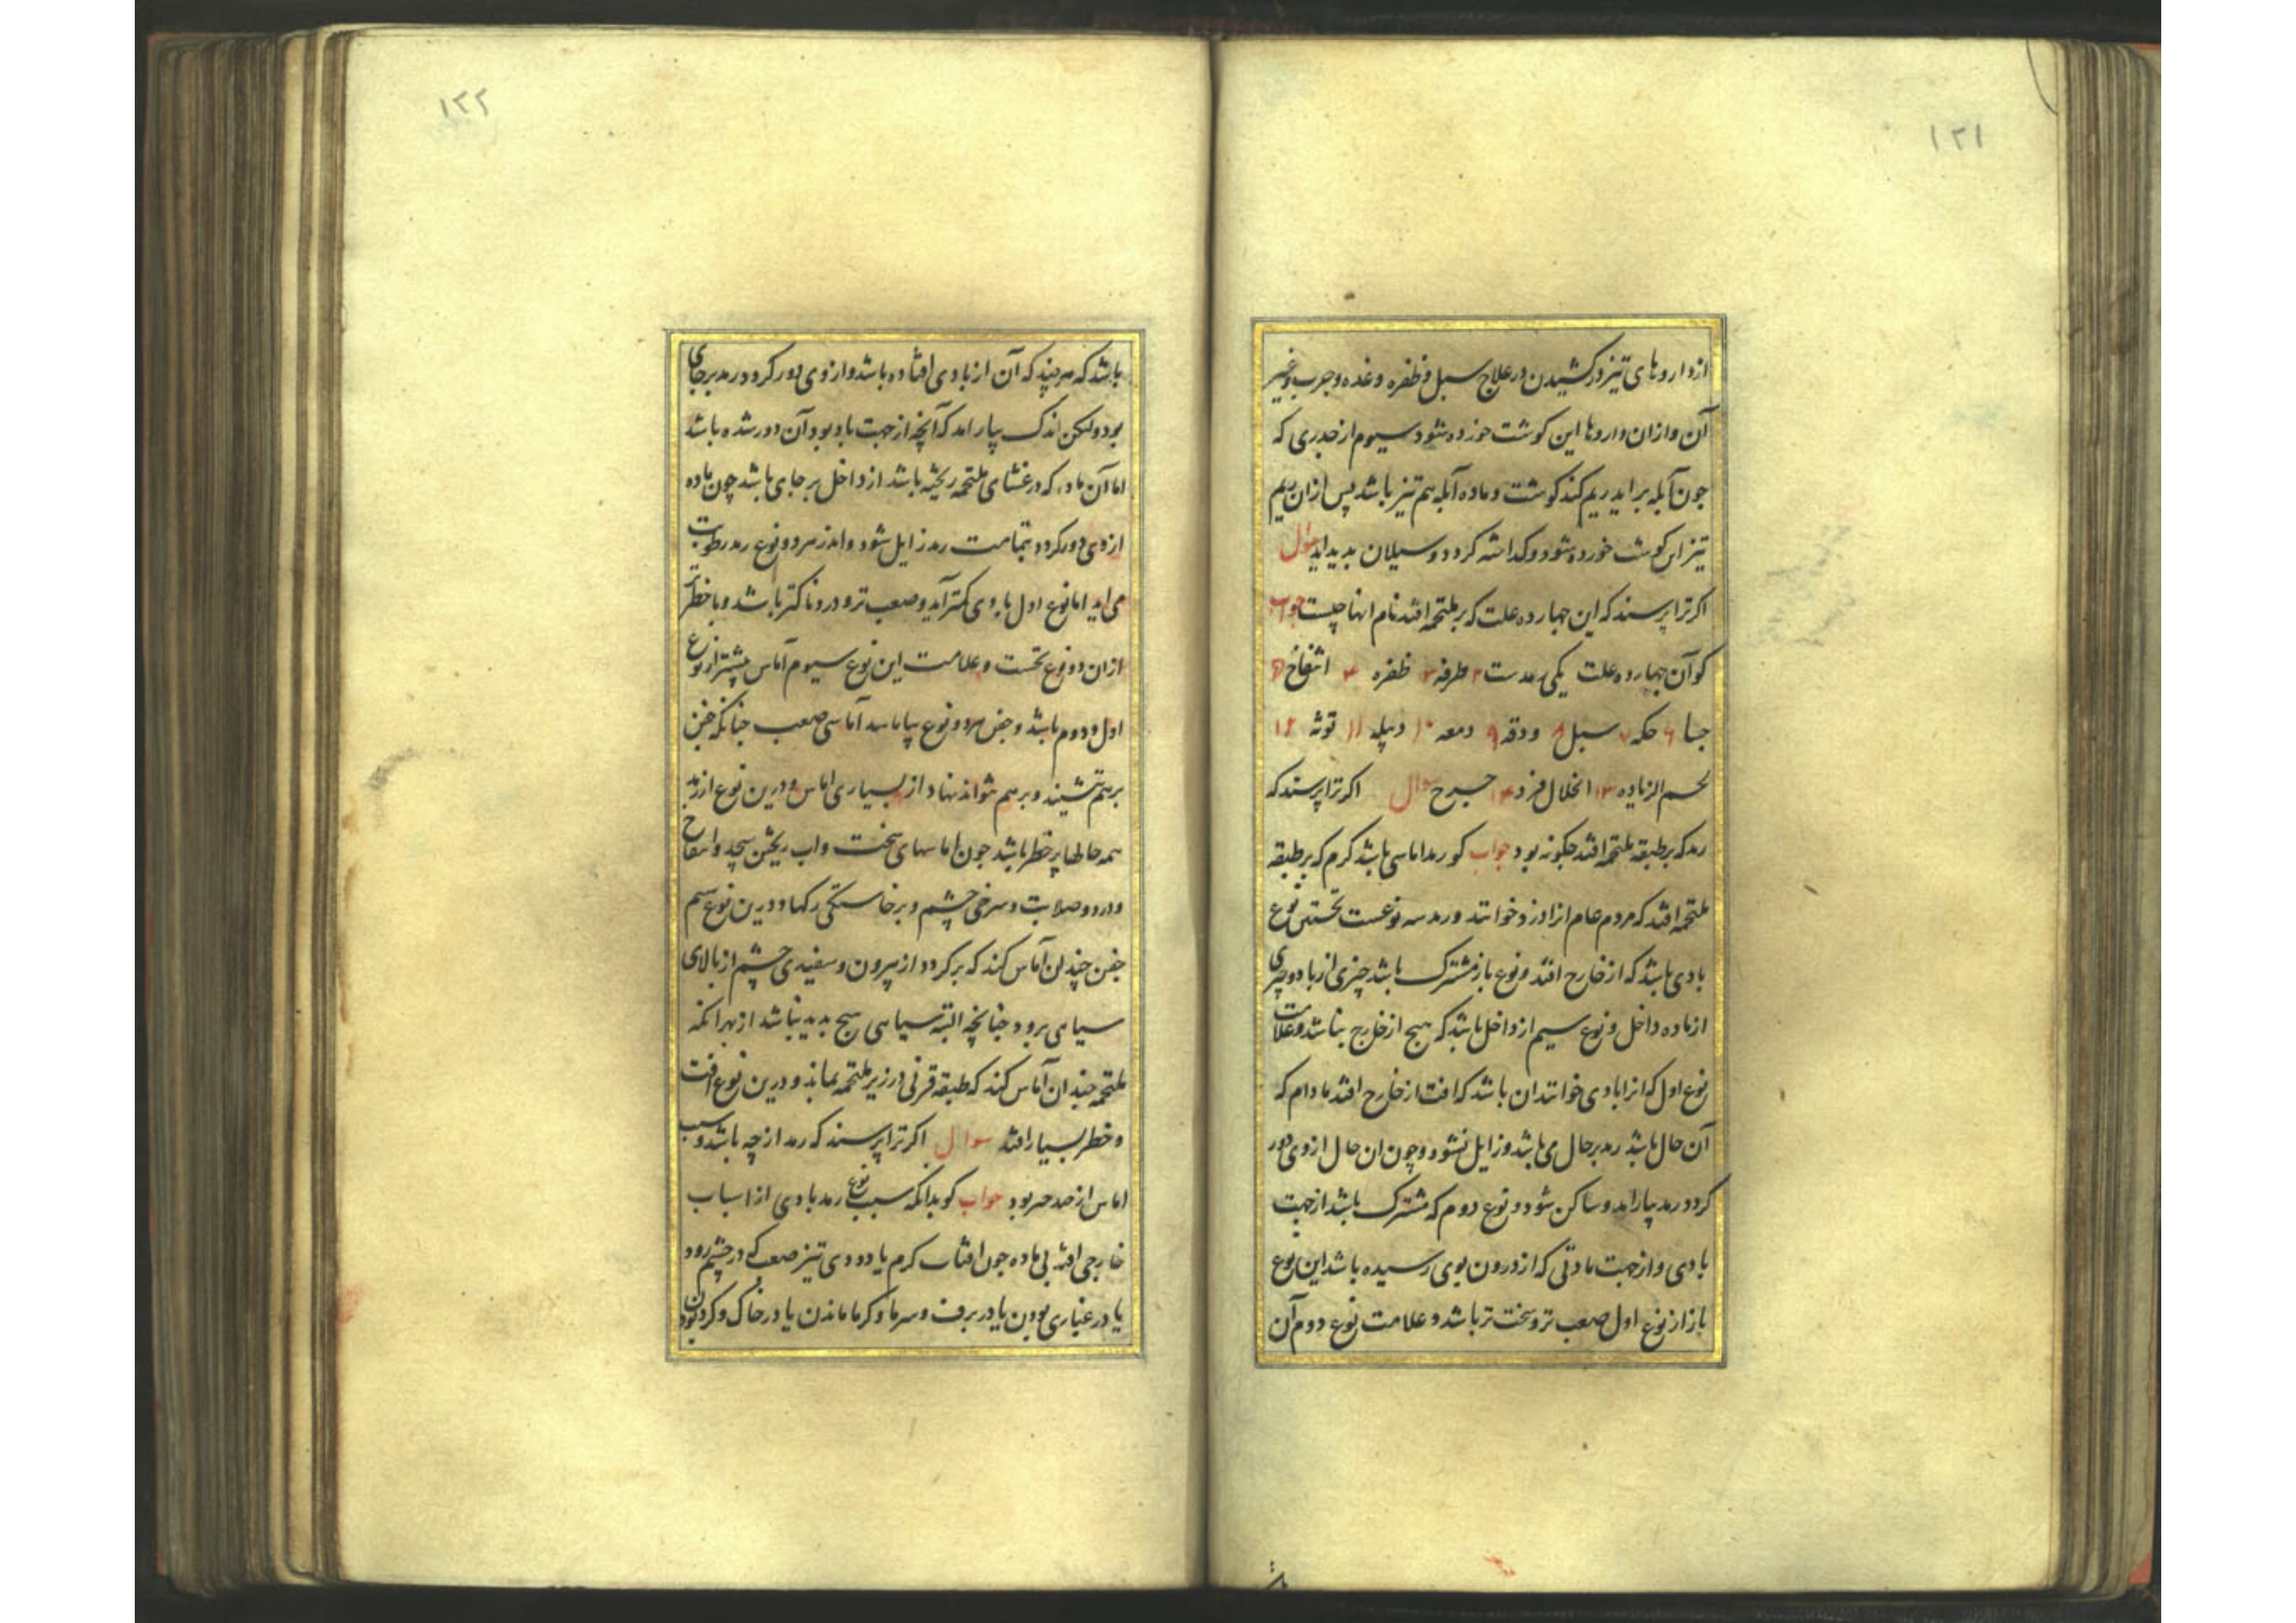 ۱۲۱
از داروهای تیز در کشیدن در علاج سبل و ظفره و غده و جرب و غیر
آن و ازان داروها این کوشت خورده شود سیوم از جدری که
جون آبله براید ریم کند کوشت و ماده آبله هم تیز باشد پس ازان ریم
تیز این کوشت خورده شود و کداخته کردد و سیلان بدید اید سوال
اکر ترا پرسند که این جهارده علت که بر ملتحمه افتد نام انها جیست جواب
کو آن جهارده علت یکی رمدست ۲ طرفه ۳ ظفره ۴ انتفاخ ۵
جسا ۶ حکه ۷ سبل ۸ ودقه ۹ دمعه ۱۰ دبیله ۱۱ توثه ۱۲
لحم الزیاده ۱۳ انحلال فرد ۱۴ جرح سوال اکر ترا پرسند که
رمد که بر طبقه ملتحمه افتد جکونه بود جواب کو رمد اماسی باشد کرم که بر طبقه
ملتحمه افتد که مردم عام انرا درد خوانند و رمد سه نوعست نخستین نوع
بادی باشد که از خارج افتد و نوع باز مشترک باشد چیزی از باد و چیزی
از ماده داخل و نوع سیم از داخل باشد که هیج از خارج نباشد و علامت
نوع اول که انرا بادی خوانند ان باشد که افت از خارج افتد مادام که
آن حال باشد رمد بر حال می باشد و زایل نشود و چون ان حال از وی دور
کردد رمد بیاراید و ساکن شود و نوع دوم که مشترک باشد از جهت
بادی و از جهت مادتی که از درون بوی رسیده باشد این نوع
باز از نوع اول صعب تر و سخت تر باشد و علامت نوع دوم آن
۱۲۲
باشد که هر چند که آن از بادی افتاده باشد و از وی دور کردد رمد بر جای
بود ولیکن اندک بیارامد که آنچه از جهت باد بود آن دور شده باشد
اما آن ماده که در غشای ملتحمه ریخته باشد از داخل بر جای باشد چون ماده
از وی دور کردد بتمامت رمد زایل شود و اندر هر دو نوع رمد رطوبت
می اید اما نوع اول بادی کمتر آید و صعب تر و دردناکتر باشد و با خطرتر
ازان دو نوع نخست و علامت این نوع سیوم آماس بیشتر از نوع
اول و دوم باشد و جفن هر دو نوع بیاماسد آماسی صعب جنانکه جفن
بر هم ننشیند و بر هم نتواند نهاد از بسیاری اماس و درین نوع از رمد
همه حالها پر خطر باشد جون اماسهای سخت و اب ریختن بیحد و انتفاخ
و درد و صلابت و سرخی چشم و برخاستگی رکها و درین نوع سیم
جفن چندان آماس کند که برکردد از بیرون و سفیدی چشم از بالای
سیاهی برود جنانچه البته سیاهی هیج بدید نباشد از بهر انکه
ملتحمه جندان آماس کند که طبقه قرنی در زیر ملتحمه بماند و درین نوع افت
و خطر بسیار افتد سوال اکر ترا پرسند که رمد از چه باشد و سبب
اماس از جه بود جواب کو بدانکه سبب نوع رمد بادی از اسباب
خارجی افتد بی ماده جون افتاب کرم یا دودی تیز صعب که در چشم رود
یا در غباری بودن یا در برف و سرما و کرما ماندن یا در خاک و کرد بودن